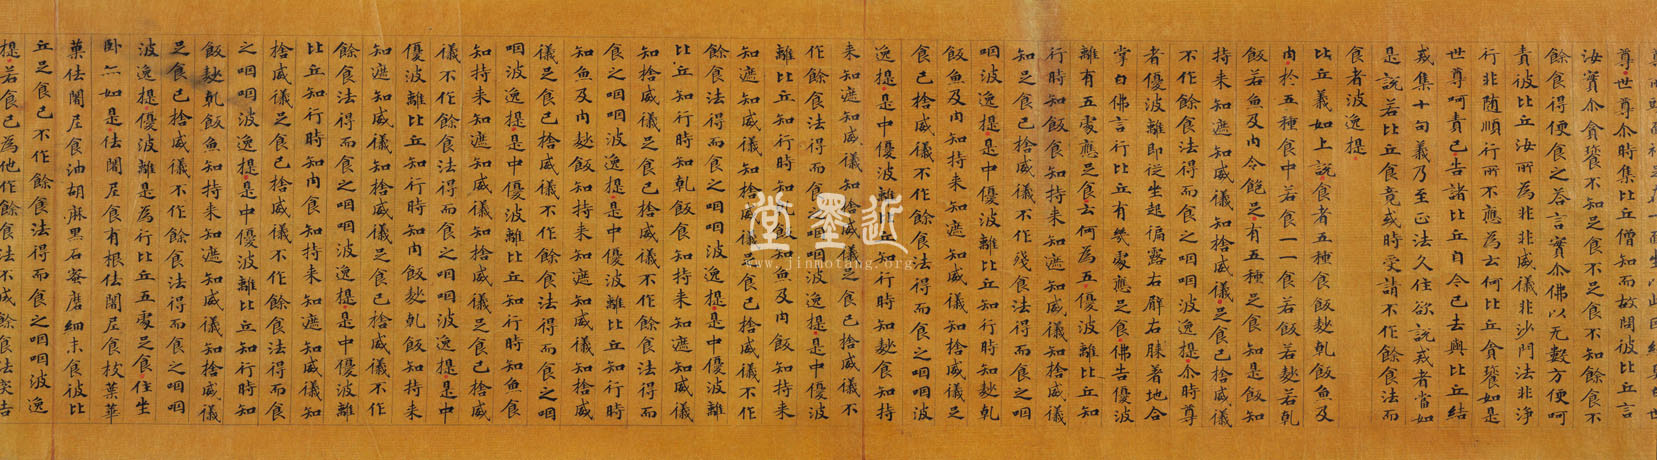 尊世尊尒時集比丘僧知而故問彼比丘言
汝實尒貪餮不知足食不足食不知餘食不
餘食得便食之荅言實尒佛以无數方便呵
責彼比丘汝所為非非威儀非沙門法非淨
行非随順行所不應為云何比丘貪餮如是
世尊呵責已告諸比丘自今已去與比丘結
戒集十句義乃至正法久住欲說戒者當如
是說若比丘食竟或時受請不作餘食法而
食者波逸提
比丘義如上說食者五種食飯麨乹飯魚及
肉於五種食中若食一一食若飯若麨若乹
飯若魚及肉令飽足有五種足食知是飯知
持来知遮知威儀知捨威儀足食已捨威儀
不作餘食法得而食之咽咽波逸提尒時尊
者優波離即從坐起徧露右臂右膝著地合
掌白佛言行比丘有幾處應足食佛告優波
離有五處應足食云何為五優波離比丘知
行時知飯食知持来知遮知威儀知捨威儀
知足食已捨威儀不作殘食法得而食之咽
咽波逸提是中優波離比丘知行時知麨乹
飯魚及肉知持来知遮知威儀知捨威儀足
食已捨威儀不作餘食法得而食之咽咽波
逸提是中優波離比丘知行時知麨食知持
来知遮知威儀知捨威儀足食已捨威儀不
作餘食法得而食之咽咽波逸提是中優波
離比丘知行時知飯知魚及肉飯知持来
知遮知威儀知捨威儀足食已捨威儀不作
餘食法得而食之咽咽波逸提是中優波離
比丘知行時知乹飯食知持来知遮知威儀
知捨威儀足食已捨威儀不作餘食法得而
食之咽咽波逸提是中優波離比丘知行時
知魚及肉麨飯知持来知遮知威儀知捨威
儀足食已捨威儀不作餘食法得而食之咽
咽波逸提是中優波離比丘知行時知魚食
知持来知遮知威儀知捨威儀足食已捨威
儀不作餘食法得而食之咽咽波逸提是中
優波離比丘知行時知肉飯麨乹飯知持来
知遮知威儀知捨威儀足食已捨威儀不作
餘食法得而食之咽咽波逸提是中優波離
比丘知行時知肉食知持来知遮知威儀知
捨威儀足食已捨威儀不作餘食法得而食
之咽咽波逸提是中優波離比丘知行時知
飯麨乹飯魚知持来知遮知威儀知捨威儀
足食已捨威儀不作餘食法得而食之咽咽
波逸提優波離是為行比丘五處足食住坐
卧亦如是佉闍尼食有根佉闍尼食枝葉華
菓佉闍尼食油胡麻黒石蜜磨細末食彼比
丘足食已不作餘食法得而食之咽咽波逸
提若食已為他作餘食法不成餘食法突吉
近墨堂
www.jinmotang.org